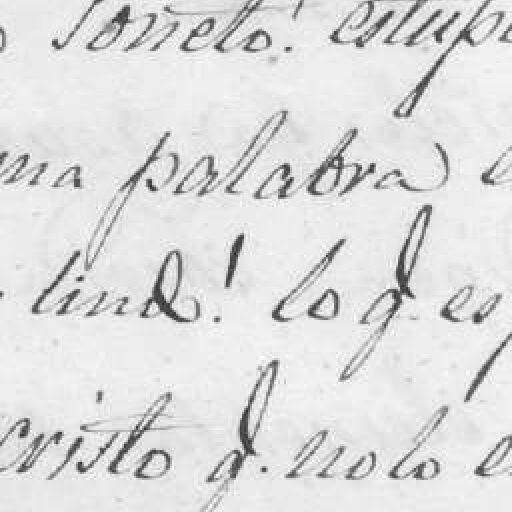 Soneto! estup
ma palabra e
lindo! lo q.e es
cristo q.e no lo e